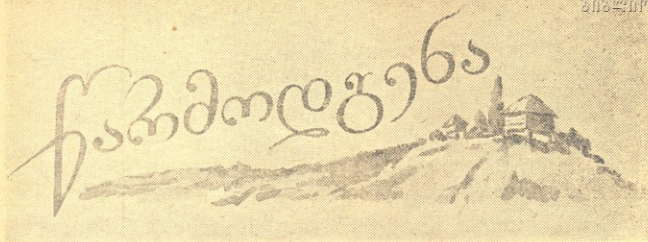 წარმოდგენა